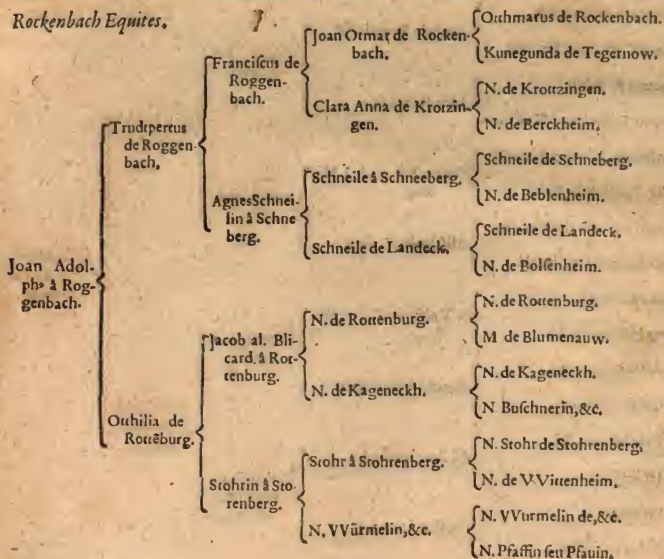 Rockenbach Equites.
Joan Adol-
phꝰ à Rog-
genbach.
Trudtpertus
de Roggen-
bach,
Otthilia de
Rottēburg.
Franciſcus de
Roggen-
bach.
AgnesSchnei-
lin à Schne
berg.
Jacob al. Bli-
card, à Rot-
tenburg.
Stohrin à Sto-
renberg.
Joan Otmar de Rocken-
bach.
Clara Anna de Krotzin-
gen.
Schneile à Schneeberg.
Schneile de Landeck.
N. de Rottenburg.
N. de Kageneckh.
Stohr à Stohrenberg.
N. VVürmelin,&c.
Otthmarus de Rockenbach.
Kunegunda de Tegernow.
N. de Krottzingen.
N. de Berckheim.
Schneile de Schneberg.
N. de Beblenheim.
Schneile de Landeck.
N. de Bolſenheim.
N. de Rottenburg.
M de Blumenauw.
N. de Kageneckh.
N Buſchnerin,&c.
N. Stohr de Stohrenberg.
N. de VVittenheim.
N. VVurmelin de,&c.
N. Pfaffin ſeu Pfauin.